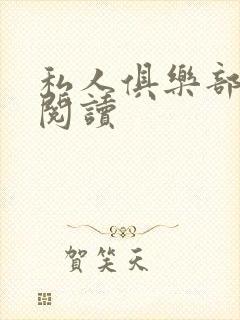 私人俱樂部
閱讀
賀笑天